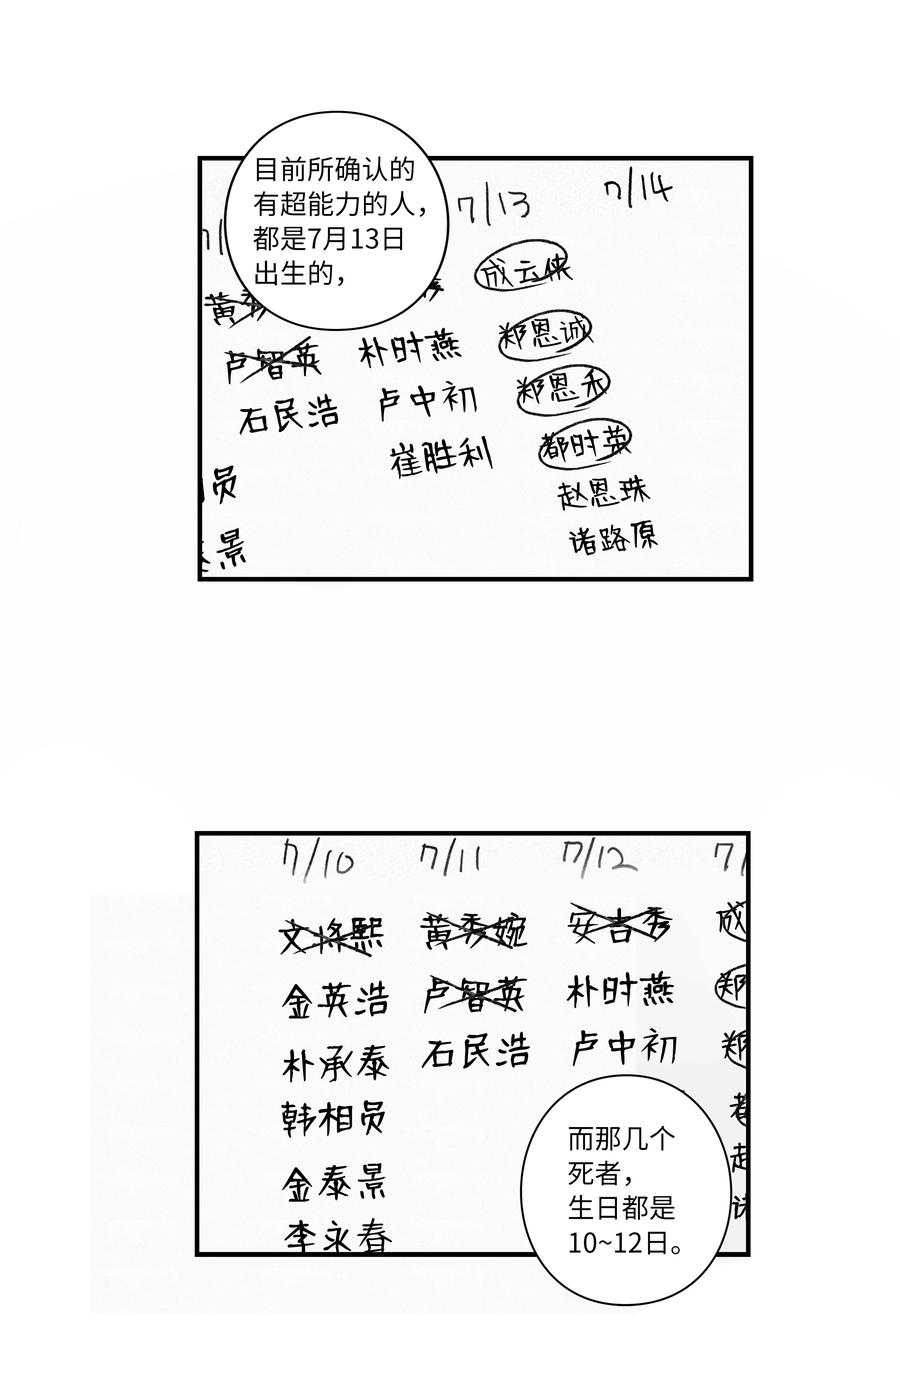 目前所确认的
有超能力的人，
都是7月13日
出生的，
7/13
7/14
黄秀
成云侠
卢智英
朴时燕
郑恩诚
石民浩
卢中初
郑恩禾
崔胜利
都时荧
员
赵恩珠
景
诸路原
7/10
7/11
7/12
7/
文将熙
黄秀婉
安吉秀
成
金英浩
卢智英
朴时燕
郑
朴承泰
石民浩
卢中初
郑
韩相员
金泰景
李永春
而那几个
死者，
生日都是
10~12日。